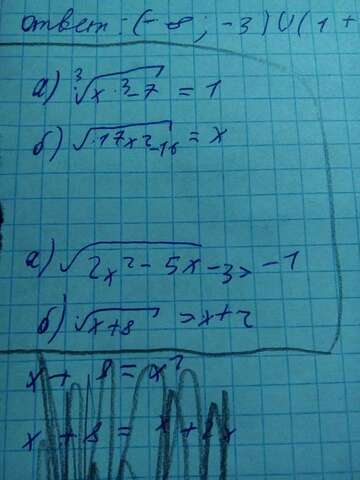 ответ: (-∞; -3)∪(1+
а) ∛x·3-7 = 1
б) √·17x2-16 = x
а) √2x²-5x-3> -1
б) √x+8 >x+2
x + 8 = x²
x + 8 =